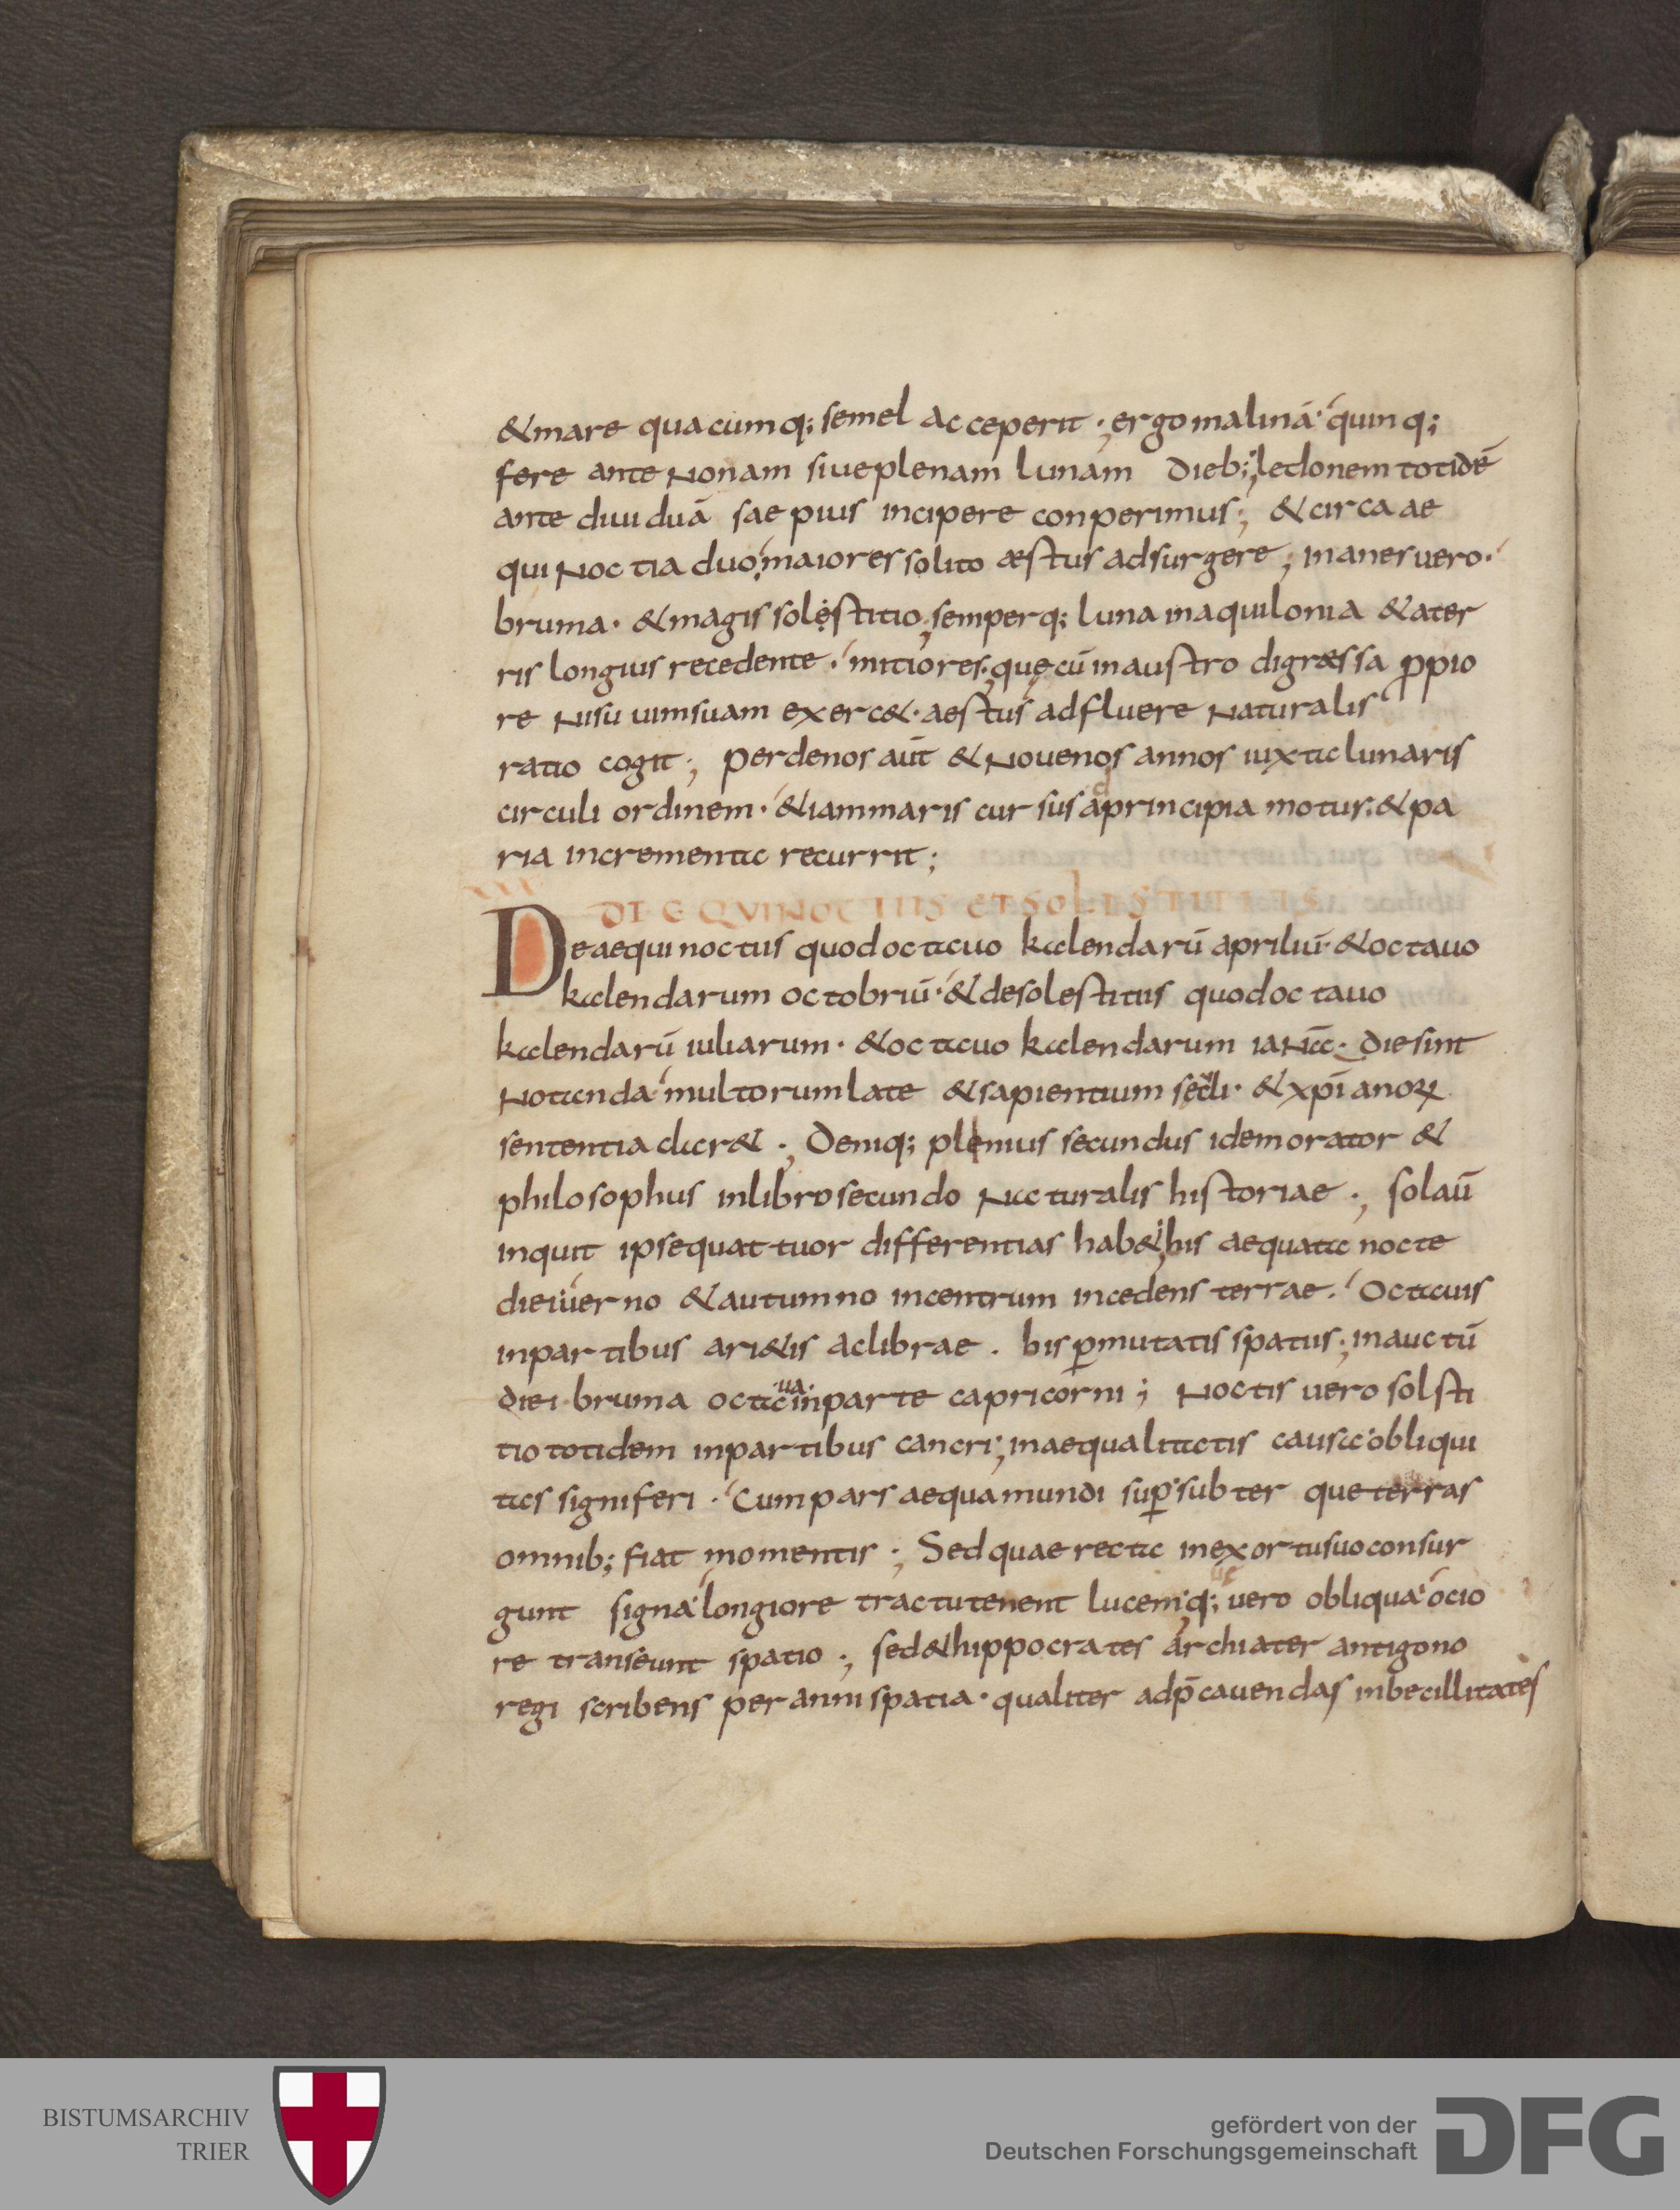 &mare quacumq; semel acceperit ·, ergo malina· quinq;
fere ante nonam siue plenam lunam dieb; ledonem totidē
ante diuiduā saepius incipere conperimus; & circa ae
quinoctia duo, maiores solito æstus adsurgere; inanes uero·
bruma· & magis solęstitio, semperq; luna inaquilonia & ater
ris longius recedente· mitiores· quę cū inaustro digræssa ꝓpio
re nisu uimsuam exerc&· aestus adfluere naturalis
ratio cogit; per denos aūt & nouenos annos iuxta lunaris
circuli ordinem· &iammaris cursus adprincipia motus· & pa
ria incrementa recurrit;
DE EQVINOCTIIS ET SOLISTITIIS
De aequinoctiis quod octauo kalendarū apriliū· & octauo
kalendarum octobriū· & desolestitiis quod octauo
kalendarū iuliarum· & octauo kalendarum ianͣ· die sint
notanda multorum late & sapientium sęcli· & xp̄ianoꝝ
sententia clar& ·, Deniq; plenius secundus idem orator &
philosophus inlibro secundo naturalis historiae ·, sol aū
inquit ipse quattuor differentias hab& bis aequata nocte
die uerno & autumno incentrum incedens terrae· Octauis
inpartibus ari&is aclibrae. bis ꝑmutatis spatiis; inauctū
diei bruma octaua inparte capricorni; noctis uero solsti
tio totidem inpartibus cancri; inaequalitatis causa obliqui
tas signiferi· Cum pars aequa mundi suꝑ subter que terras
omnib; fiat momentis ·, Sed quae recta inexortu suo consur
gunt signa longiore tractu tenent lucem q; uero obliqua ocio
re transeunt spatio ·, sed & hippocrates archiater antigono
regi scribens per anni spatia· qualiter adp̄cauendas inbecillitates
BISTUMSARCHIV
TRIER
gefördert von der
Deutschen Forschungsgemeinschaft
DFG